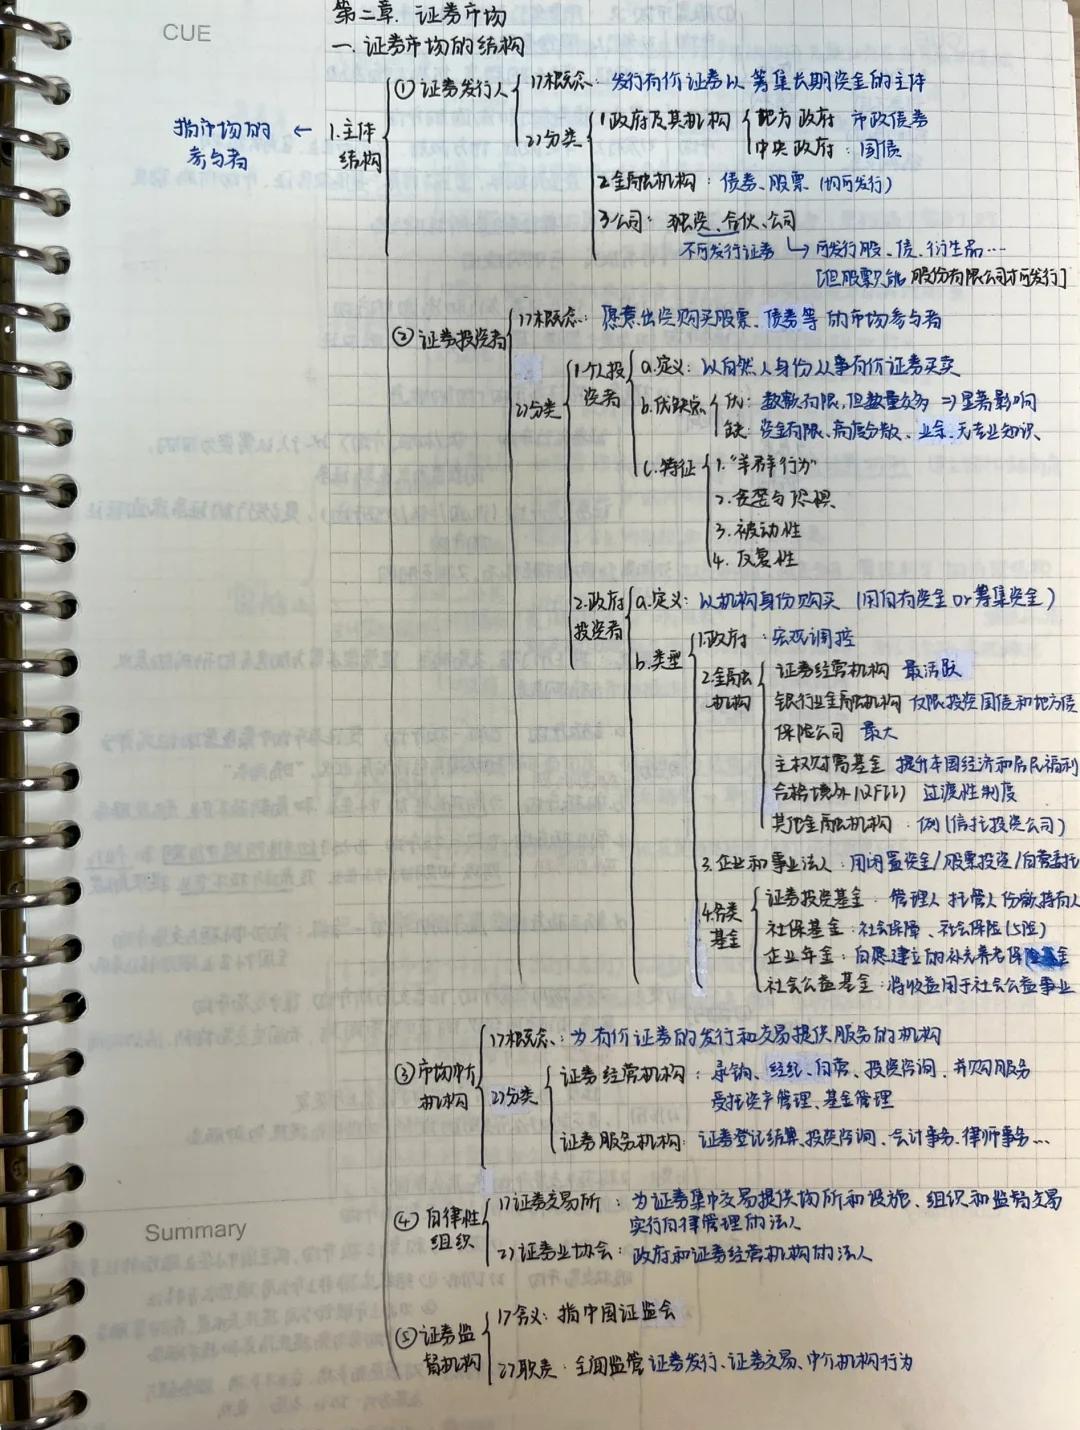 CUE
第二章. 证券市场
一. 证券市场的结构
指市场的参与者 ← 1.主体结构
① 证券发行人
1)概念: 发行有价证券以筹集长期资金的主体
2)分类
1.政府及其机构
地方政府 市政债券
中央政府: 国债
2.金融机构: 债券、股票 (均可发行)
3.公司: 独资、合伙、公司
不可发行证券 ↳ 可发行股、债、衍生品…
[但股票只能股份有限公司才可发行]
② 证券投资者
1)概念: 愿意出资购买股票、债券等的市场参与者
2)分类
1.个人投资者
a.定义: 以自然人身份从事有价证券买卖
b.优缺点
优: 数额有限,但数量众多 ⇒ 显著影响
缺: 资金有限、高度分散、业余、无专业知识、
c.特征
1."羊群行为"
2.贪婪与恐惧
3.被动性
4.反复性
2.政府投资者
a.定义: 以机构身份购买 (用自有资金or筹集资金)
b.类型
1.政府: 宏观调控
2.金融机构
证券经营机构 最活跃
银行业金融机构 仅限投资国债和地方债
保险公司 最大
主权财富基金 提升本国经济和居民福利
合格境外(QFII) 过渡性制度
其他金融机构: 例(信托投资公司)
3.企业和事业法人: 用闲置资金/股票投资/自营委托
4.各类基金
证券投资基金: 管理人 托管人 份额持有人
社保基金: 社会保障、社会保险(5险)
企业年金: 自愿建立的补充养老保险基金
社会公益基金: 将收益用于社会公益事业
③ 市场中介机构
1)概念: 为有价证券的发行和交易提供服务的机构
2)分类
证券经营机构: 承销、经纪、自营、投资咨询、并购服务
受托资产管理、基金管理
证券服务机构: 证券登记结算、投资咨询、会计事务、律师事务…
④ 自律性组织
1)证券交易所: 为证券集中交易提供场所和设施、组织和监督交易
实行自律管理的法人
2)证券业协会: 政府和证券经营机构的法人
Summary
⑤ 证券监督机构
1)含义: 指中国证监会
2)职责: 全面监管证券发行、证券交易、中介机构行为